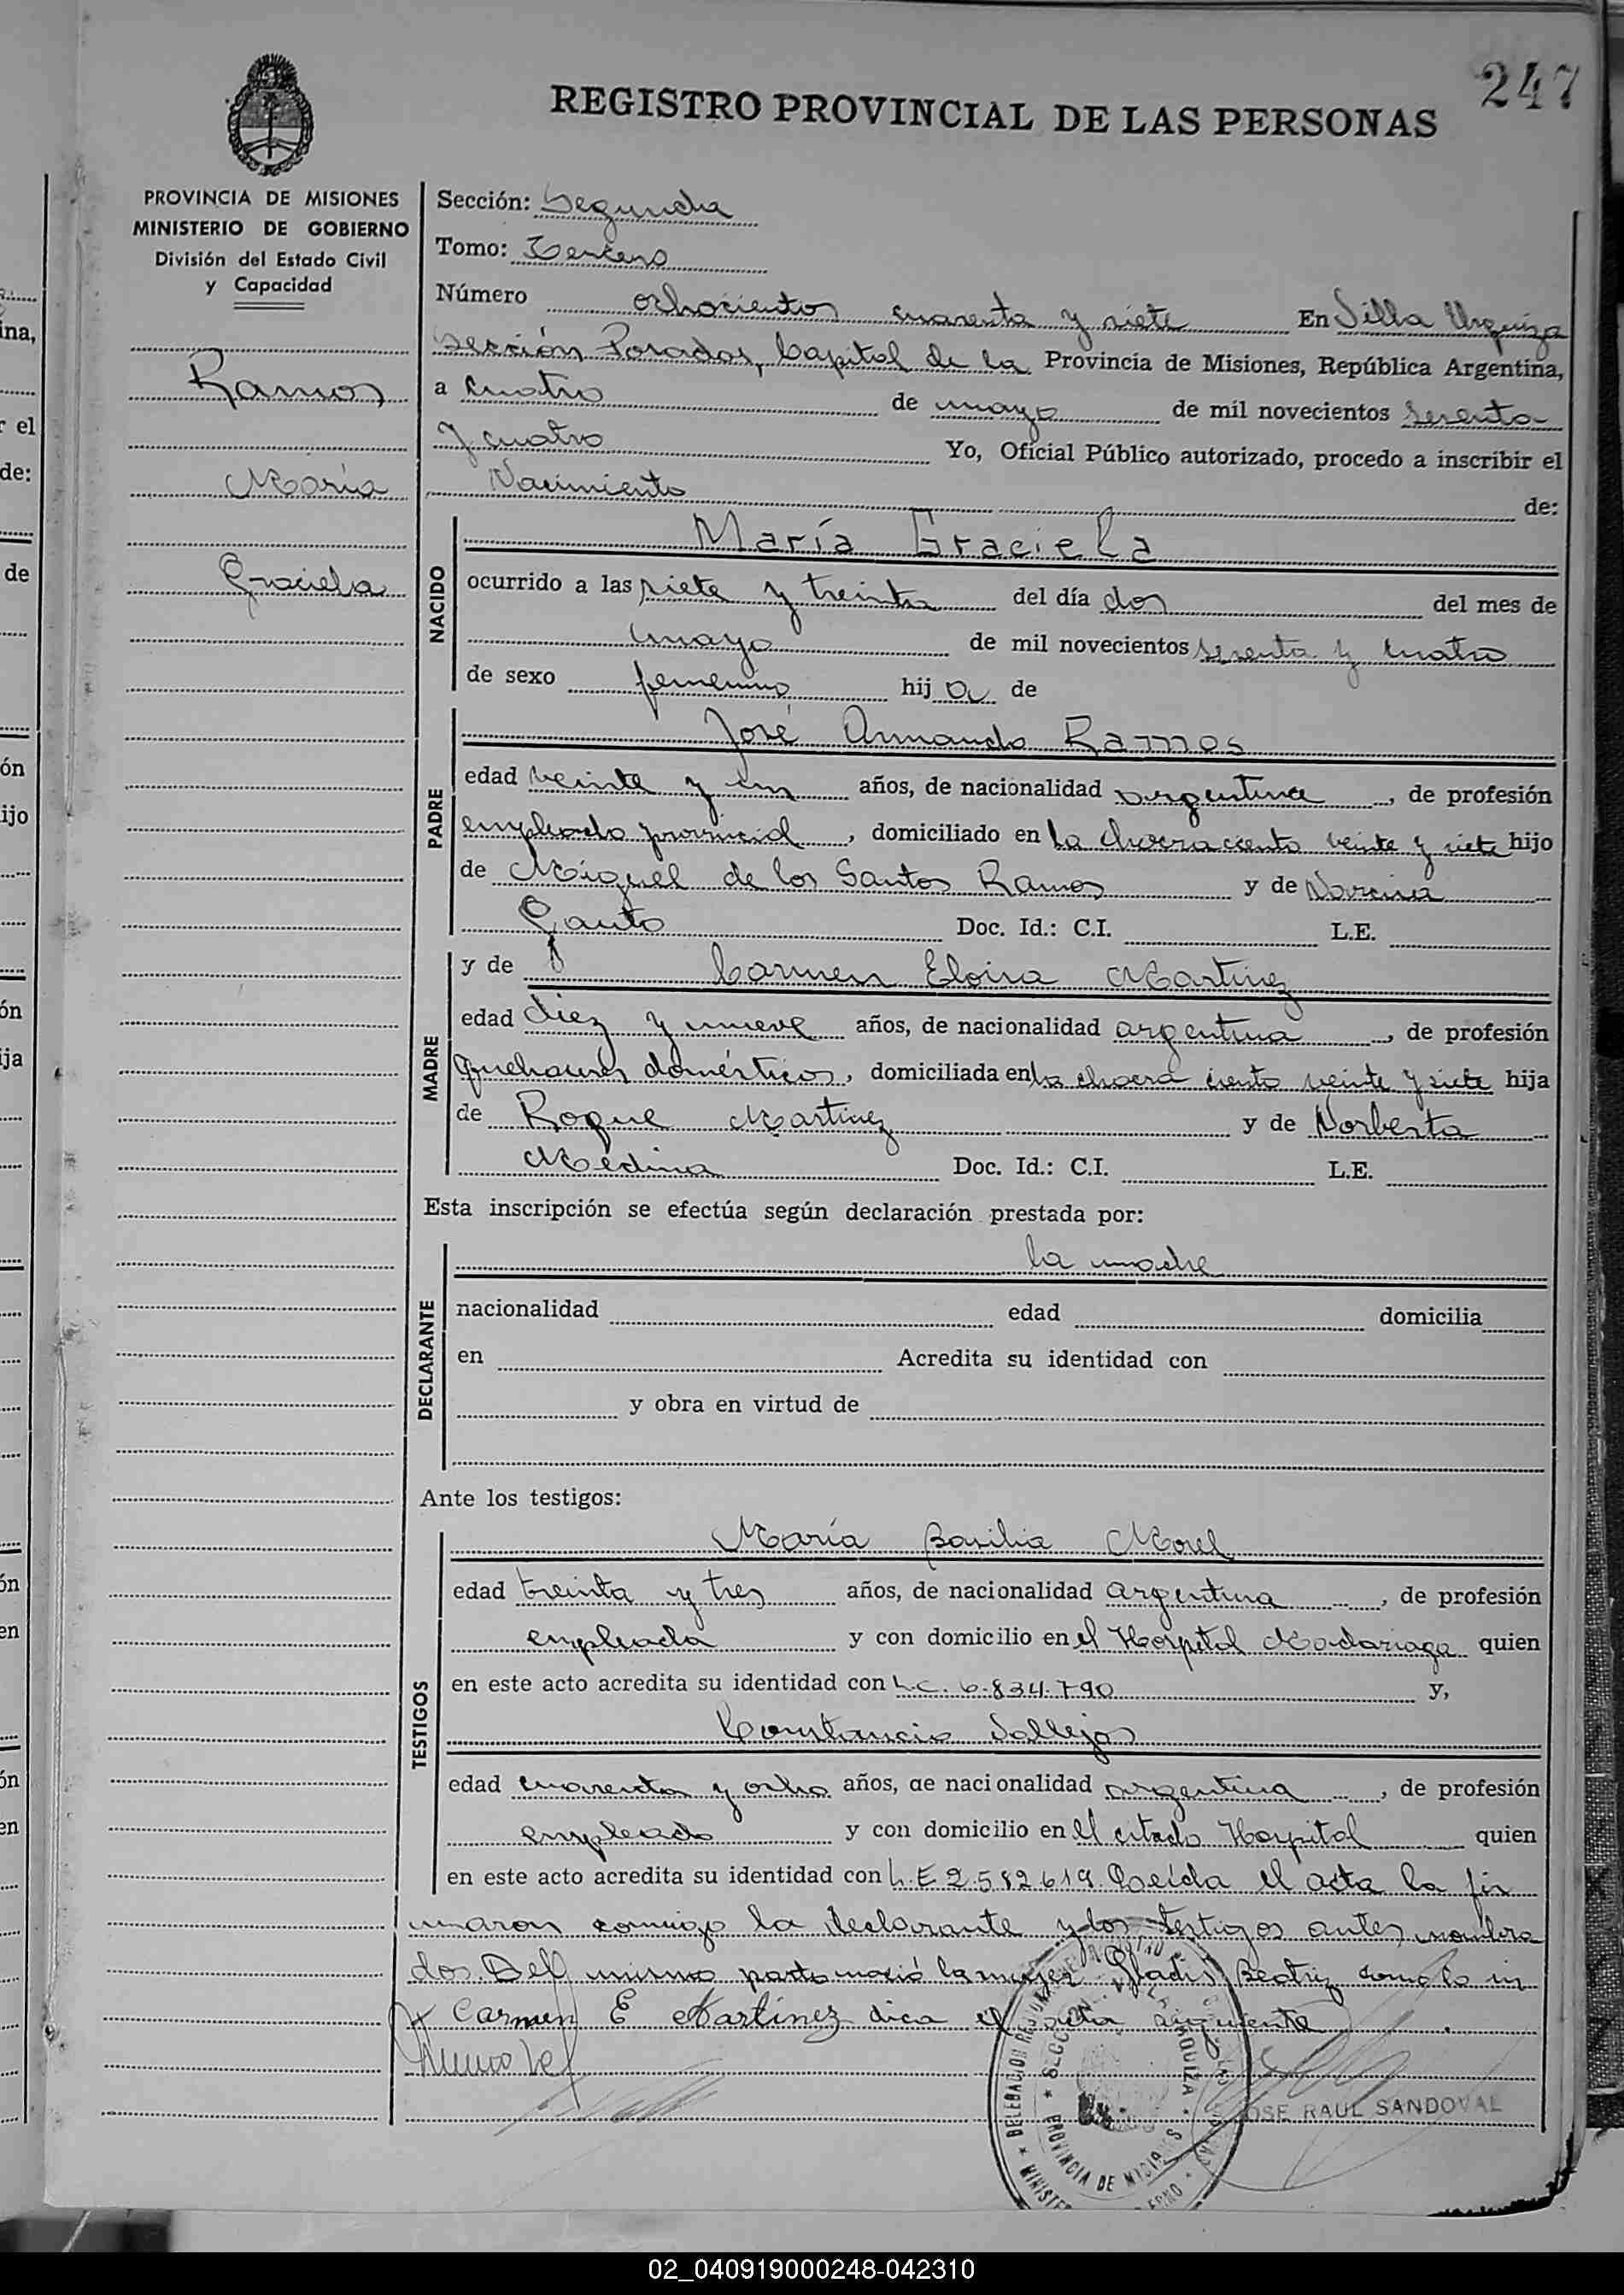 247
REGISTRO PROVINCIAL DE LAS PERSONAS
PROVINCIA DE MISIONES
MINISTERIO DE GOBIERNO
División del Estado Civil
y Capacidad
Ramos
María
Graciela
Sección: Segunda
Tomo: Tercero
Número ochocientos cuarenta y siete En Villa Urquiza
sección Posadas, Capital de la Provincia de Misiones, República Argentina,
a cuatro de mayo de mil novecientos sesenta
y cuatro Yo, Oficial Público autorizado, procedo a inscribir el
Nacimiento de:
NACIDO
María Graciela
ocurrido a las siete y treinta del día dos del mes de
mayo de mil novecientos sesenta y cuatro
de sexo femenino hija de
PADRE
José Armando Ramos
edad veinte y un años, de nacionalidad argentina, de profesión
empleado provincial, domiciliado en la chacra ciento veinte y siete hijo
de Miguel de los Santos Ramos y de Narcisa
Gauto Doc. Id.: C.I. L.E.
MADRE
y de Carmen Eloisa Martinez
edad diez y nueve años, de nacionalidad argentina, de profesión
quehaceres domésticos, domiciliada en la chacra ciento veinte y siete hija
de Roque Martinez y de Norberta
Medina Doc. Id.: C.I. L.E.
Esta inscripción se efectúa según declaración prestada por:
DECLARANTE
la madre
nacionalidad edad domicilia
en Acredita su identidad con
y obra en virtud de
Ante los testigos:
TESTIGOS
María Basilia Morel
edad treinta y tres años, de nacionalidad argentina, de profesión
empleada y con domicilio en el Hospital Madariaga quien
en este acto acredita su identidad con L.C. 6.834.790 y,
Constancio Vallejos
edad cuarenta y ocho años, de nacionalidad argentina, de profesión
empleado y con domicilio en el citado Hospital quien
en este acto acredita su identidad con L.E 2.582.619. Leída el acta la fir
maron conmigo la declarante y los testigos antes nombra
dos. Del mismo parto nació la mujer Gladis Beatriz como lo in
Carmen E Martínez dica el acta siguiente
JOSE RAUL SANDOVAL
PROVINCIA DE MISIONES
02_040919000248-042310